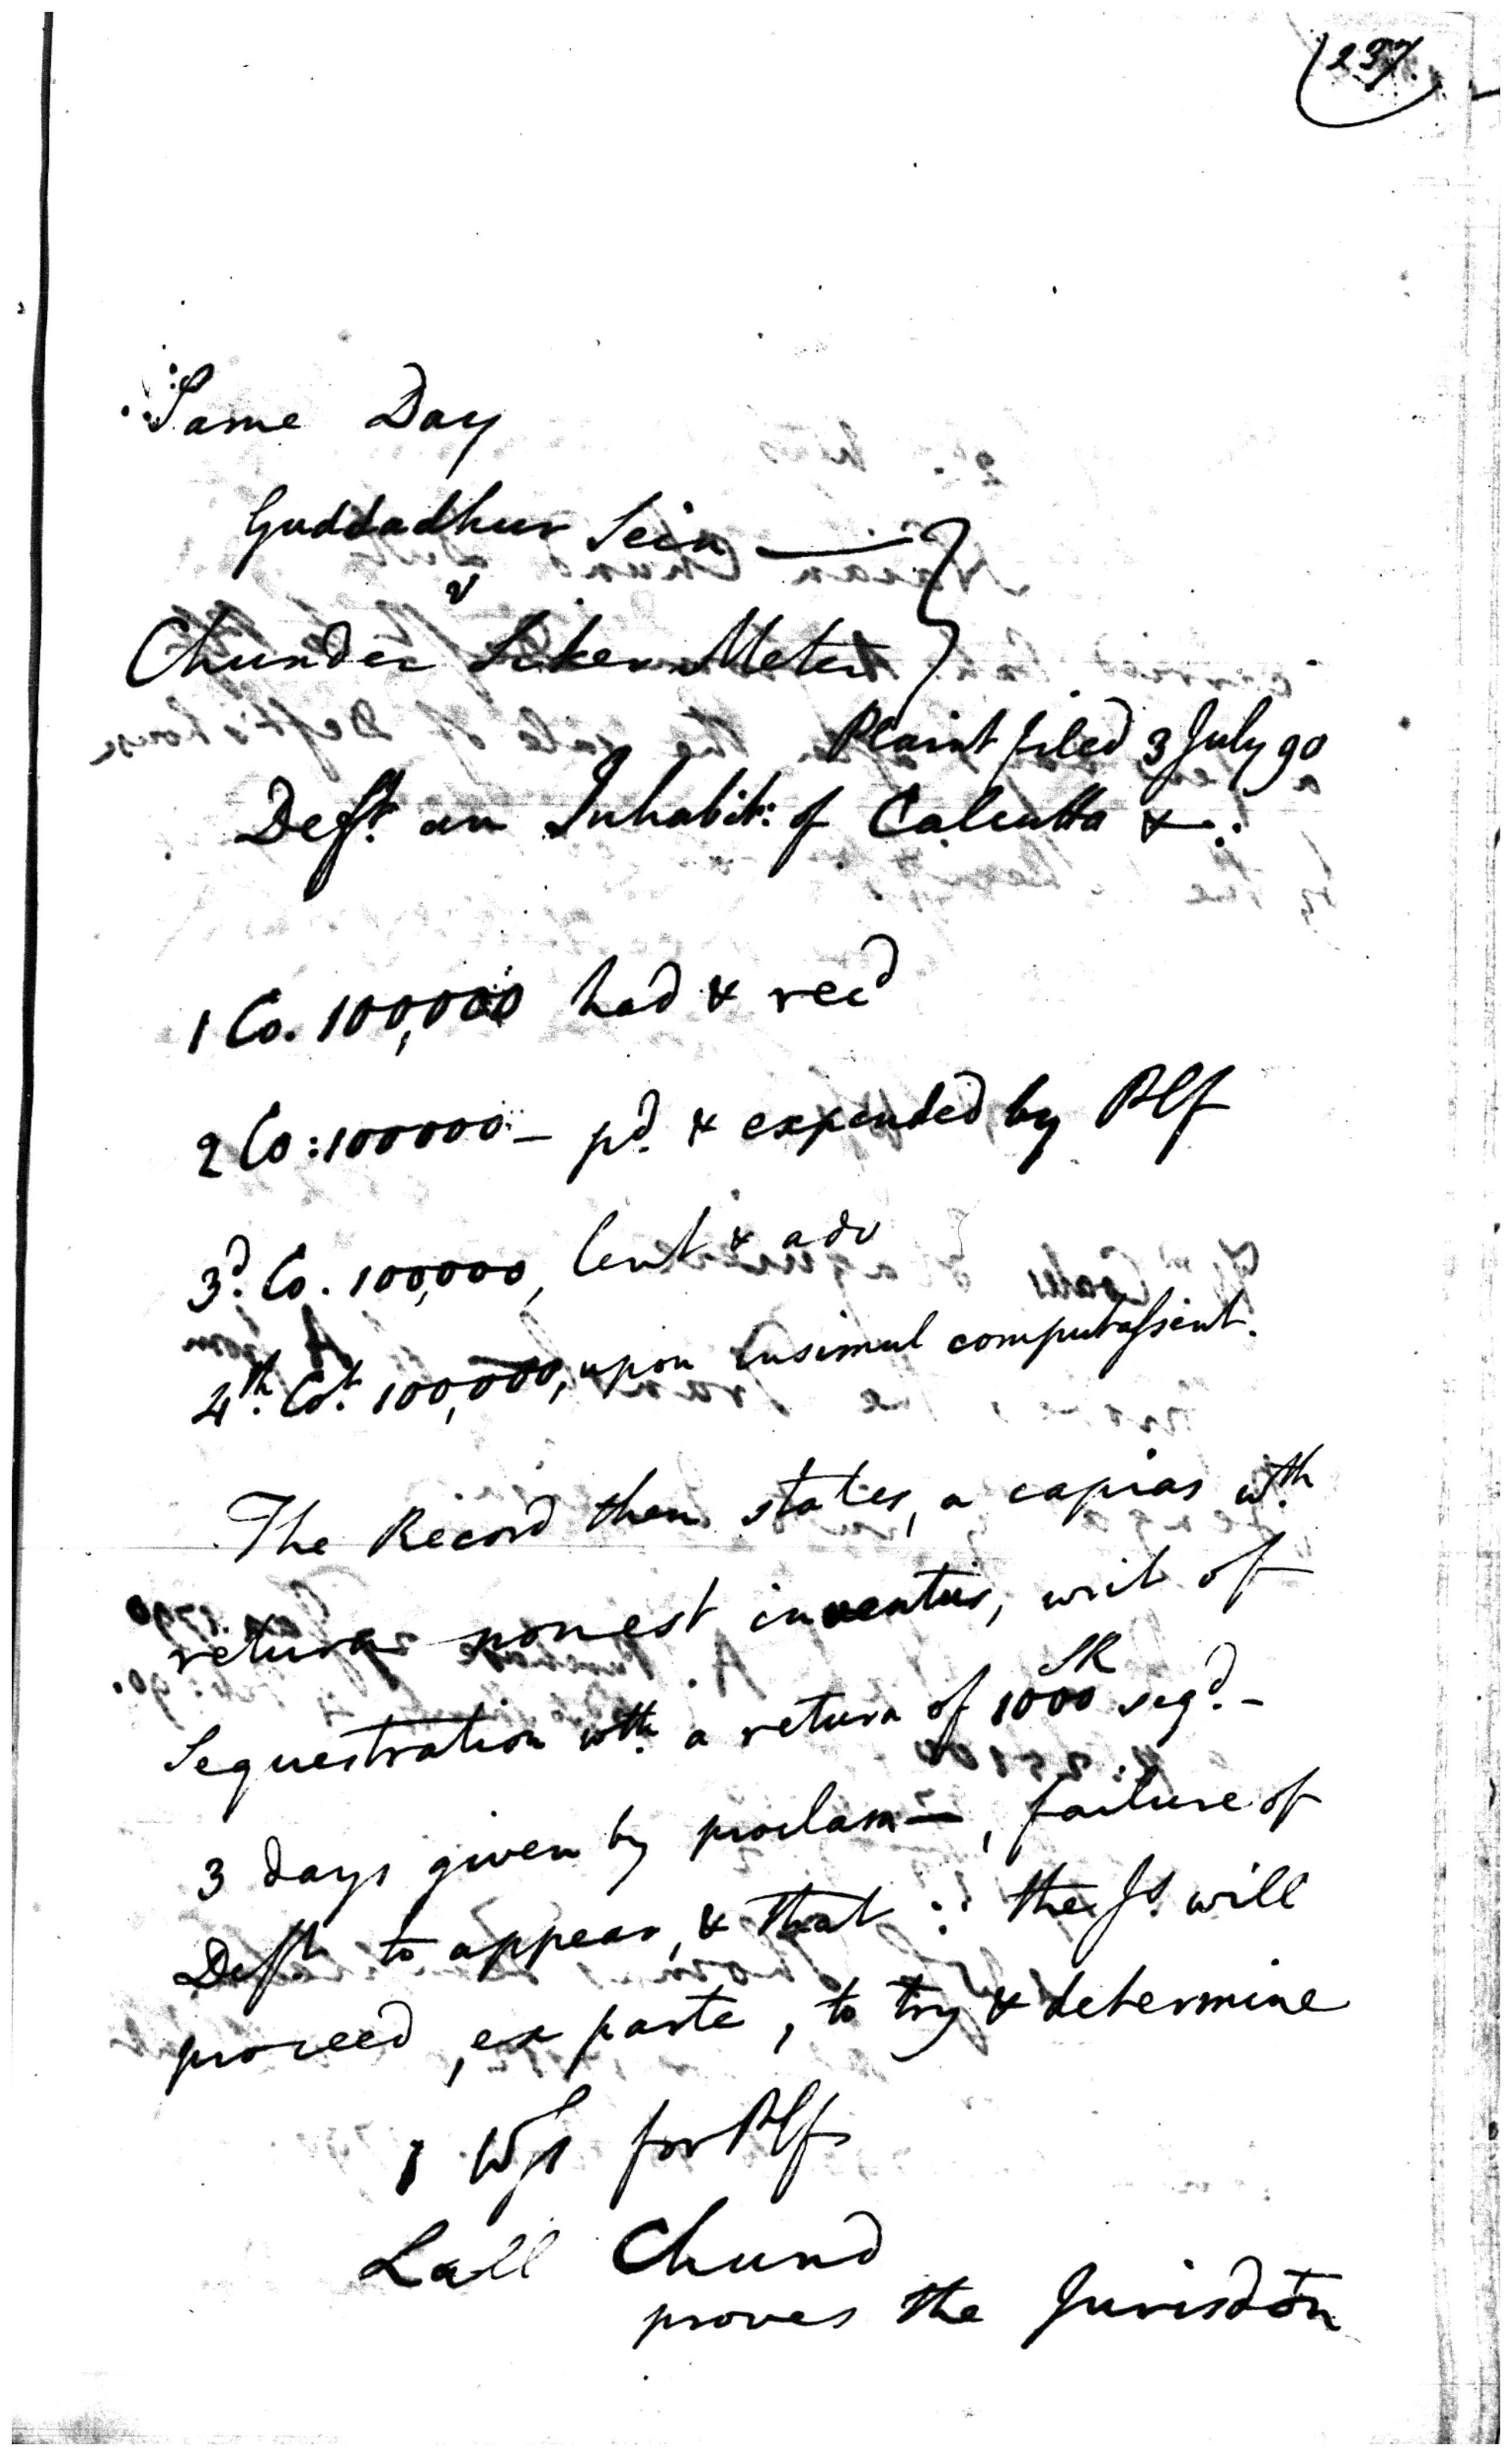 237.
Same Day
Guddadhur Sein —
v
Chunder Seker Meter
Plaint filed 3 July 90
Deft. an Inhabit: of Calcutta &.:
1 Co. 100,000 had & recd
2 Co: 100000 — pd. & expended by Plf
3d. Co. 100,000, lent & adv
4th. Cot. 100,000, upon insimul computassent.
The Record then states, a capias wth
return nonest inventus, writ of
Sequestration wth. a return of 1000 SR seqd. —
3 days given by proclam—, failure of
Deft to appear, & that ∵ the Js. will
proceed, ex parte, to try & determine
1 Wss for Plf
Lall Chund
proves the Jurisdon